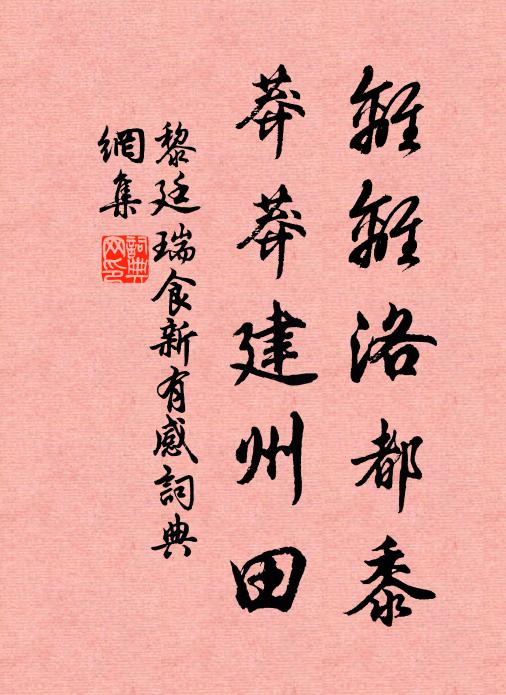 離離洛都黍
莽莽建州田
黎廷瑞食新有感詞典
網集
詞典
网印